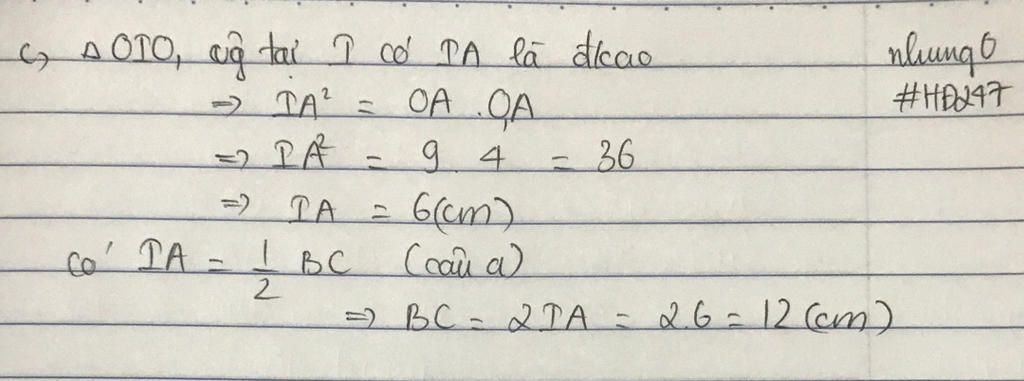 c, Δ OIO, vg̃ tại I có IA là đ/cao
nhung
#HĐ247
=> IA² = OA . O,A
=> IA² = 9 . 4 = 36
=> IA = 6(cm)
có IA = 1/2 BC (câu a)
=> BC = 2IA = 2.6 = 12 (cm)